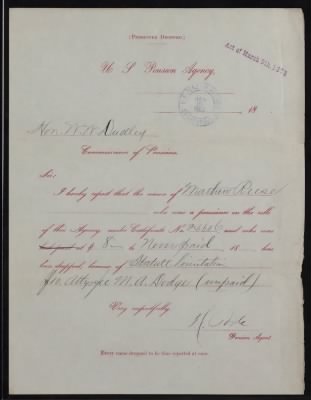 (PENSIONER DROPPED.)
Act of March 9th, 1878
U S Pension Agency,
18
Hon. W. W. Dudley
Commissioner of Pensions.
Sir:
I hereby report that the name of Mathew Reese
who was a pensioner on the rolls
of this Agency under Certificate No. and who was
last paid at $ 8 to Never paid 18 has
been dropped, because of Limitation
Fee Atty M. A. Dodge (unpaid)
Very respectfully,
Pension Agent.
Every name dropped to be thus reported at once.